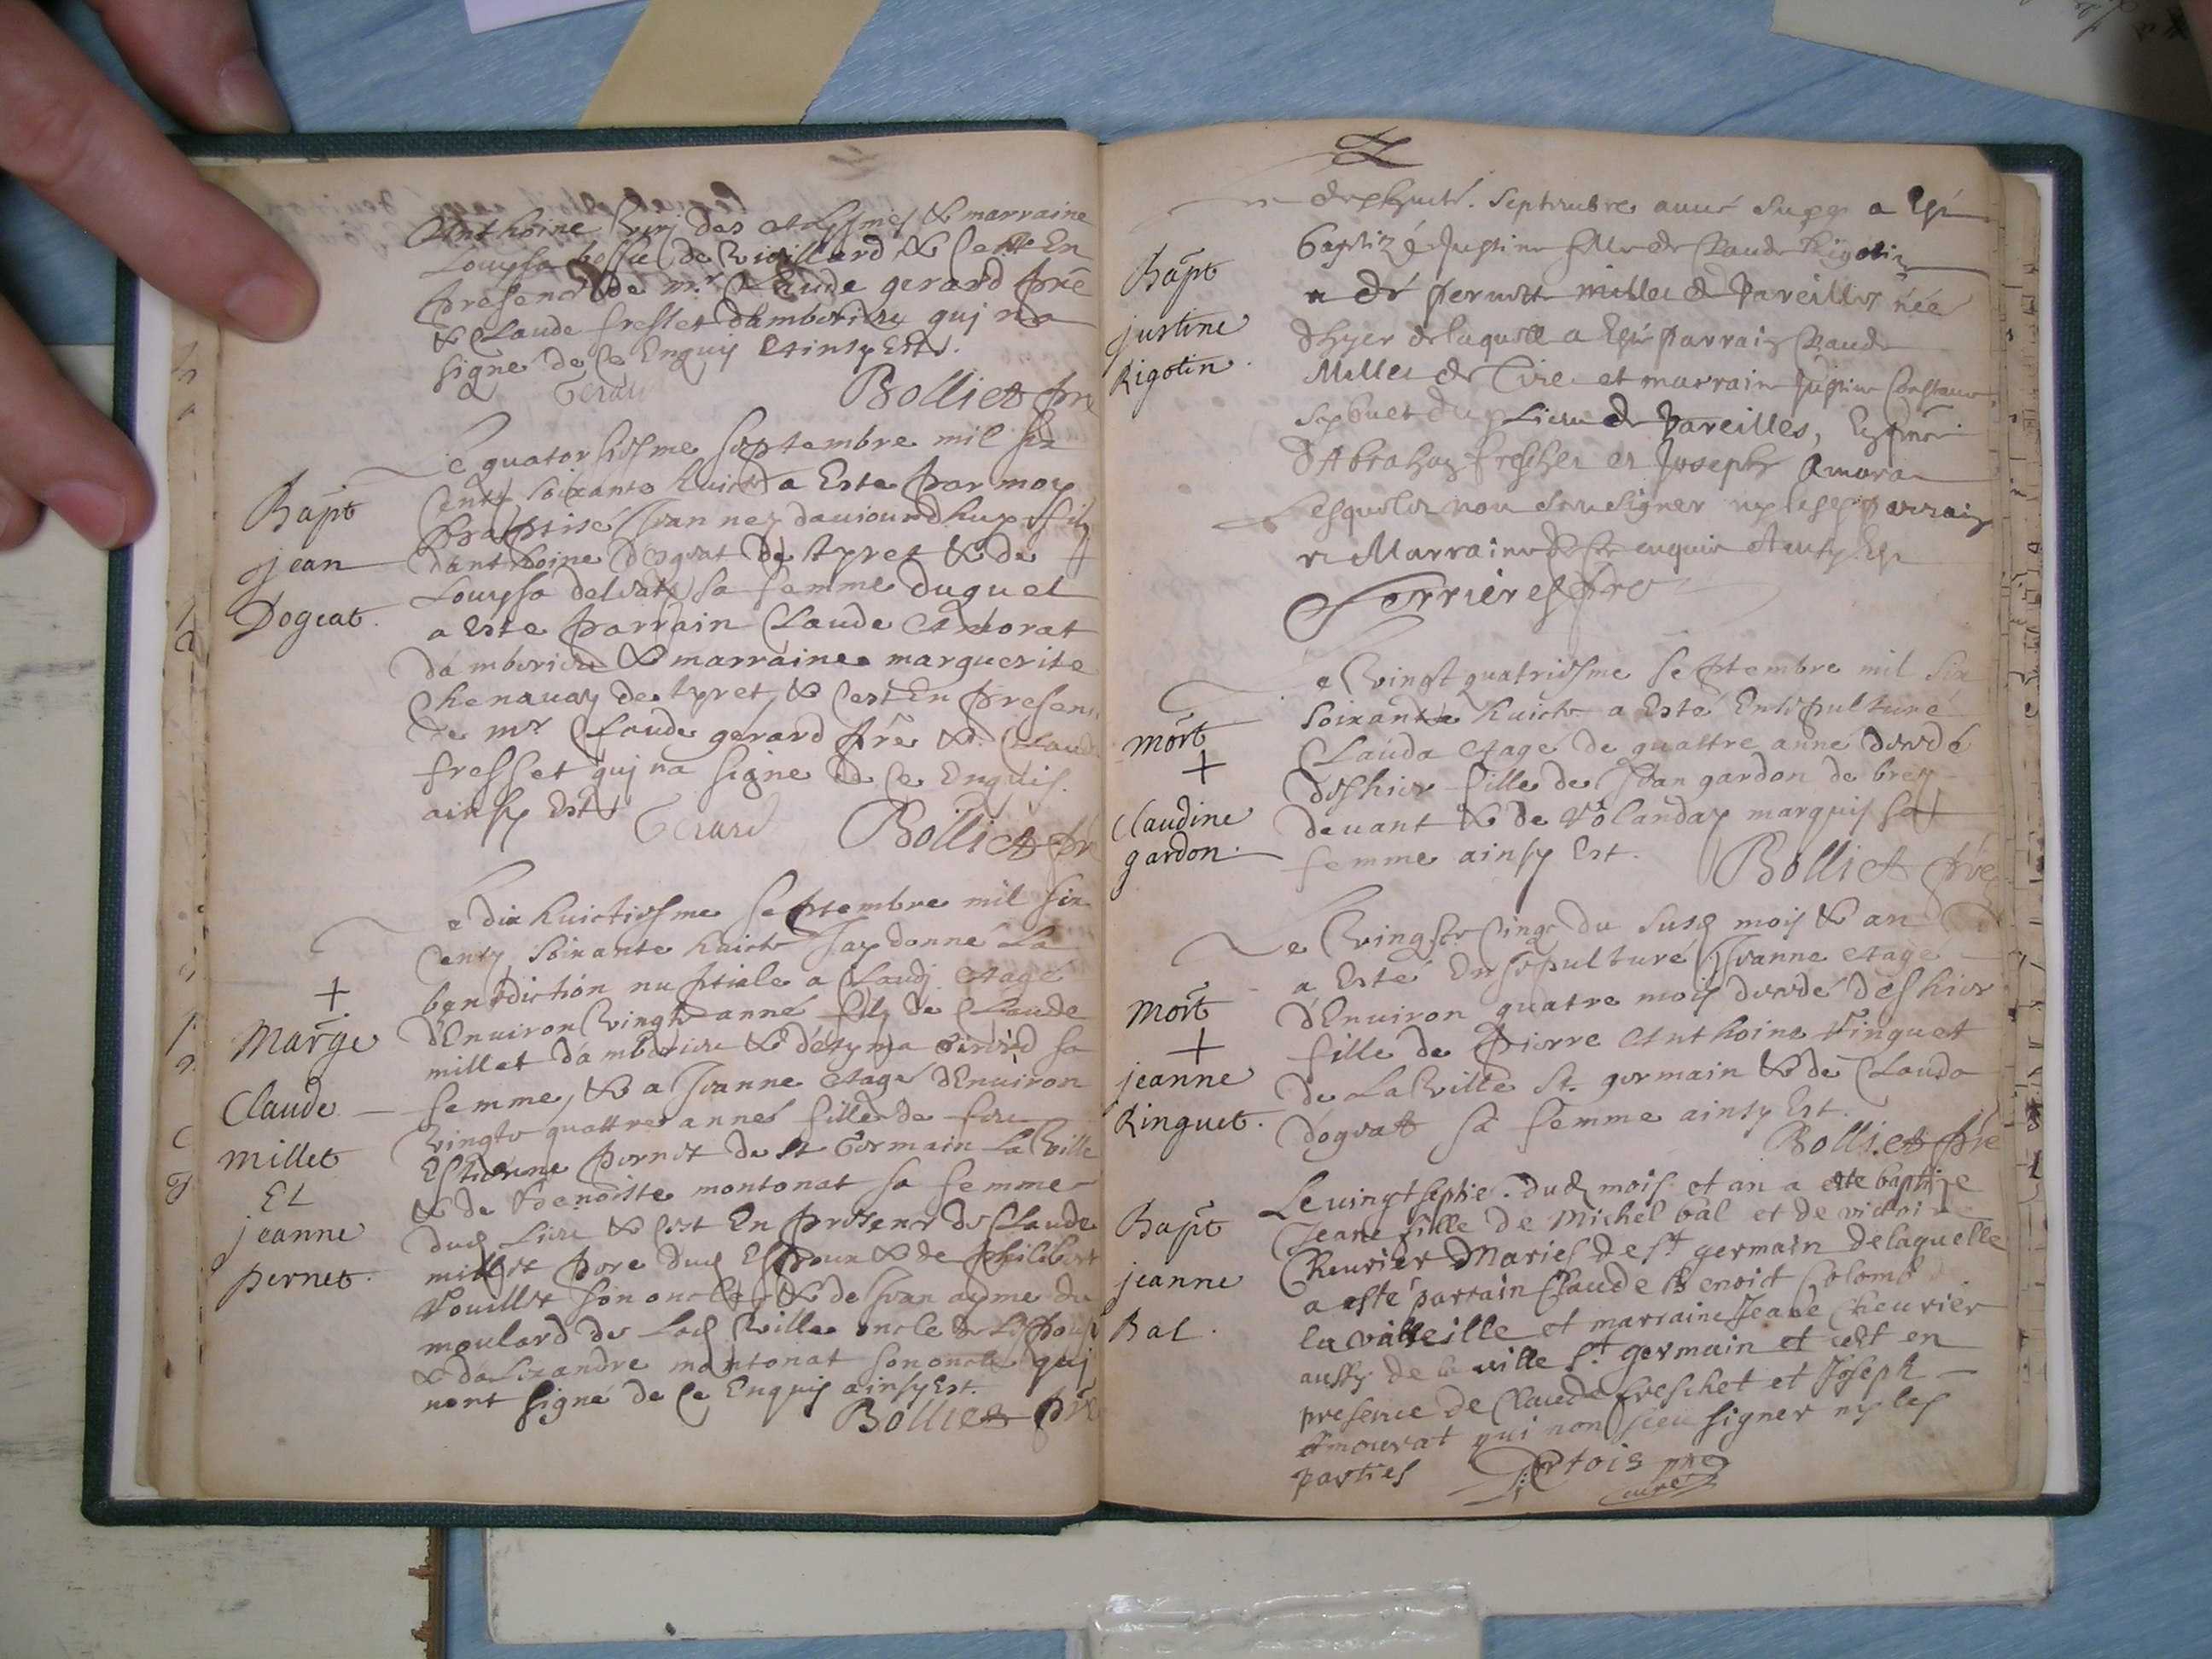 Anthoine des & marraine
Louysa bossu de & C'est En
presence de mr Claude gerard pre
& Claude fresset damberieu quj na
signé de ce Enquis Et ainsy Est.
Gerard Bolliet pre
Bapt
jean
Dogeat.
Le quatorsiesme septembre mil six
cents soixante huict a Este par moy
Baptisé Jean nez dauiourdhuy fils
danthoine Dogeat de & de
Louysa sa femme duquel
a Este parrain Claude Amorat
damberieu & marraine marguerite
Chenauay de & c'est En presence
de mr Claude gerard pre & Claude
fresset quj na signe de ce Enquis.
ainsy Est Gerard Bolliet pre
+
Marge
Claude
millet
Et
jeanne
pernet.
Le dix huictiesme septembre mil six
cents soixante huict Jay donné La
benediction nuptiale a Claudj Aagé
dEnuiron Vingts anné fils de Claude
millet damberieu & sa
femme, & a Jeanne Aagé dEnuiron
Vingts quattres annés fille de feu
Estienne pernet de st Germain La Ville
& de Benoiste montonat sa femme
dud Lieu & c'est En presence de Claude
millet pere dud Espoux & de philibert
Vouillet son oncle, & de Jean aymé du
moulard de Lad Ville oncle de Lespouse
& da Lixandre montonat son oncle quj
nont signé de ce Enquis ainsy Est.
Bolliet pre
Bapt
justine
Rigotin.
septembre année a Esté
baptizé Justine fille de Claude Rigotin
& de pernette millet de Vareilles née
dhyer de laquelle a Esté parrain Claude
Millet de et marraine Justine
du Lieu de Vareilles, En pnce
d'Abraham freschet et Joseph Amora
Lesquels non sceu signer ny les parrain
et Marraine de ce enquis Et ainsy Est
Ferrieres pre
mort
+
Claudine
gardon.
Le Vingt quatriesme septembre mil six
soixante huict a Esté Ensepulturé
Clauda Aagé de quattre anné
deshier fille de Jean gardon de brey
deuant & de Volanday marquis sa
femme ainsy Est. Bolliet pre
mort
+
jeanne
Ringuet.
Le Vingts Cinq du susd mois & an
a Esté Ensepulturé Jeanne Aagé
dEnuiron quatre mois deshier
fille de pierre Anthoine Ringuet
de La Ville St. germain & de Clauda
dogeatt sa femme ainsy Est.
Bolliet pre
Bapt
jeanne
Bal.
Le uingt septie. dud mois et an a este baptize
Jeane fille de Michel bal et de victoire
Cheurier Mariés de st germain de laquelle
a esté parrain Claude benoict Colomb
la et marraine Jeane Cheurier
aussy de la ville st germain et cest en
presence de Claude freschet et Joseph
Amourat qui non sceu signer ny les
parties pre
curé